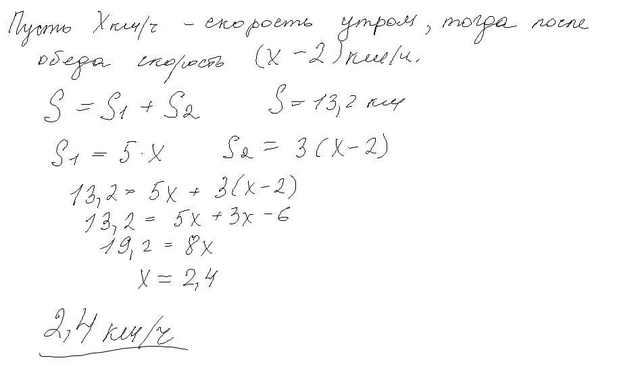 Пусть X км/ч – скорость утром, тогда после
обеда скорость (x – 2) км/ч.
S = S1 + S2 S = 13,2 км
S1 = 5·x S2 = 3(x – 2)
13,2 = 5x + 3(x – 2)
13,2 = 5x + 3x – 6
19,2 = 8x
x = 2,4
2,4 км/ч